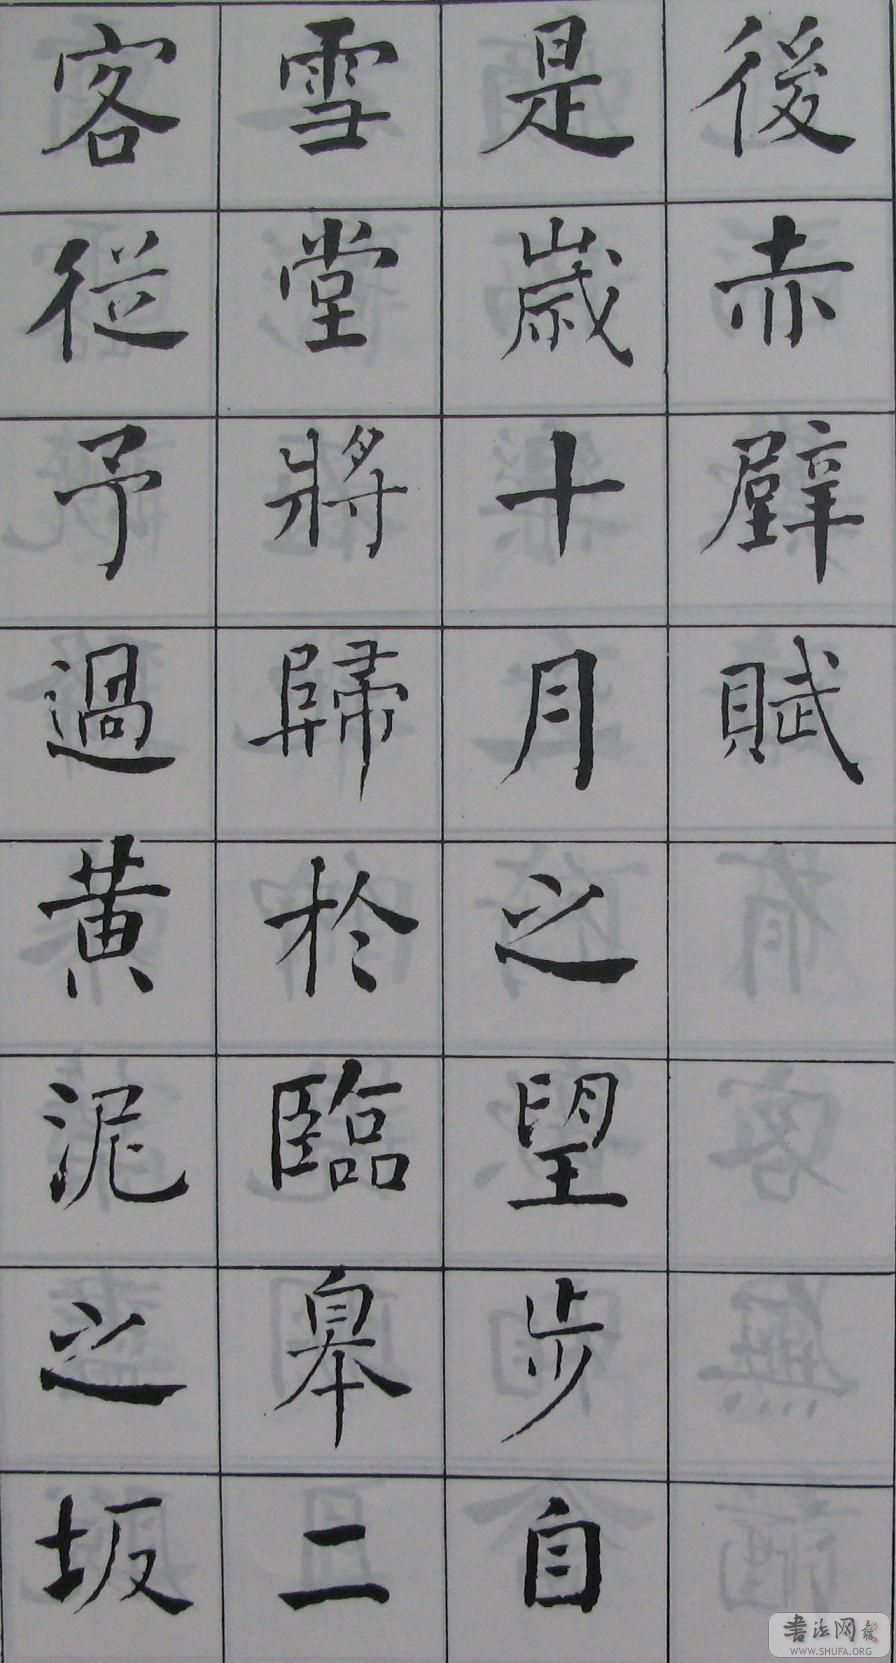 後赤壁賦
是歲十月之望步自
雪堂將歸於臨皋二
客從予過黃泥之坂
書法网
WWW.SHUFA.ORG